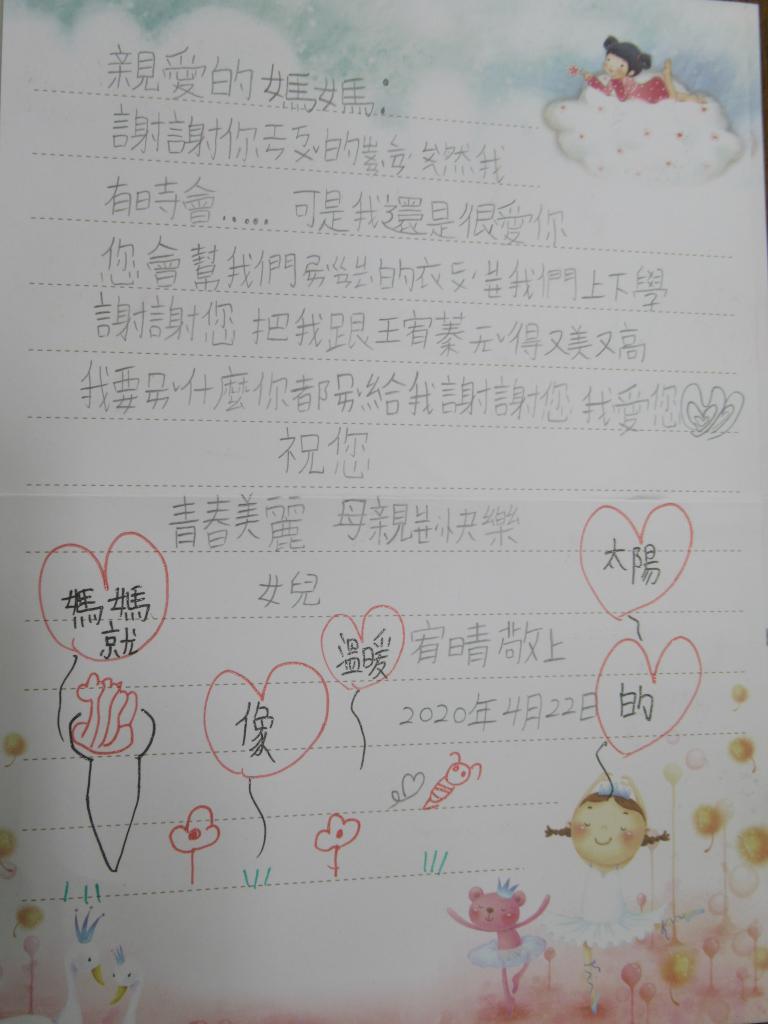 親愛的媽媽：
謝謝你ㄢㄆ的 然我
有時會..... 可是我還是很愛你
您會幫我們 的衣 我們上下學
謝謝您 把我跟王宥蓁 得又美又高
我要 什麼你都 給我謝謝您 我愛您
祝您
青春美麗 母親 快樂
女兒
宥晴敬上
2020年4月22日
媽媽
就
像
溫暖
的
太陽